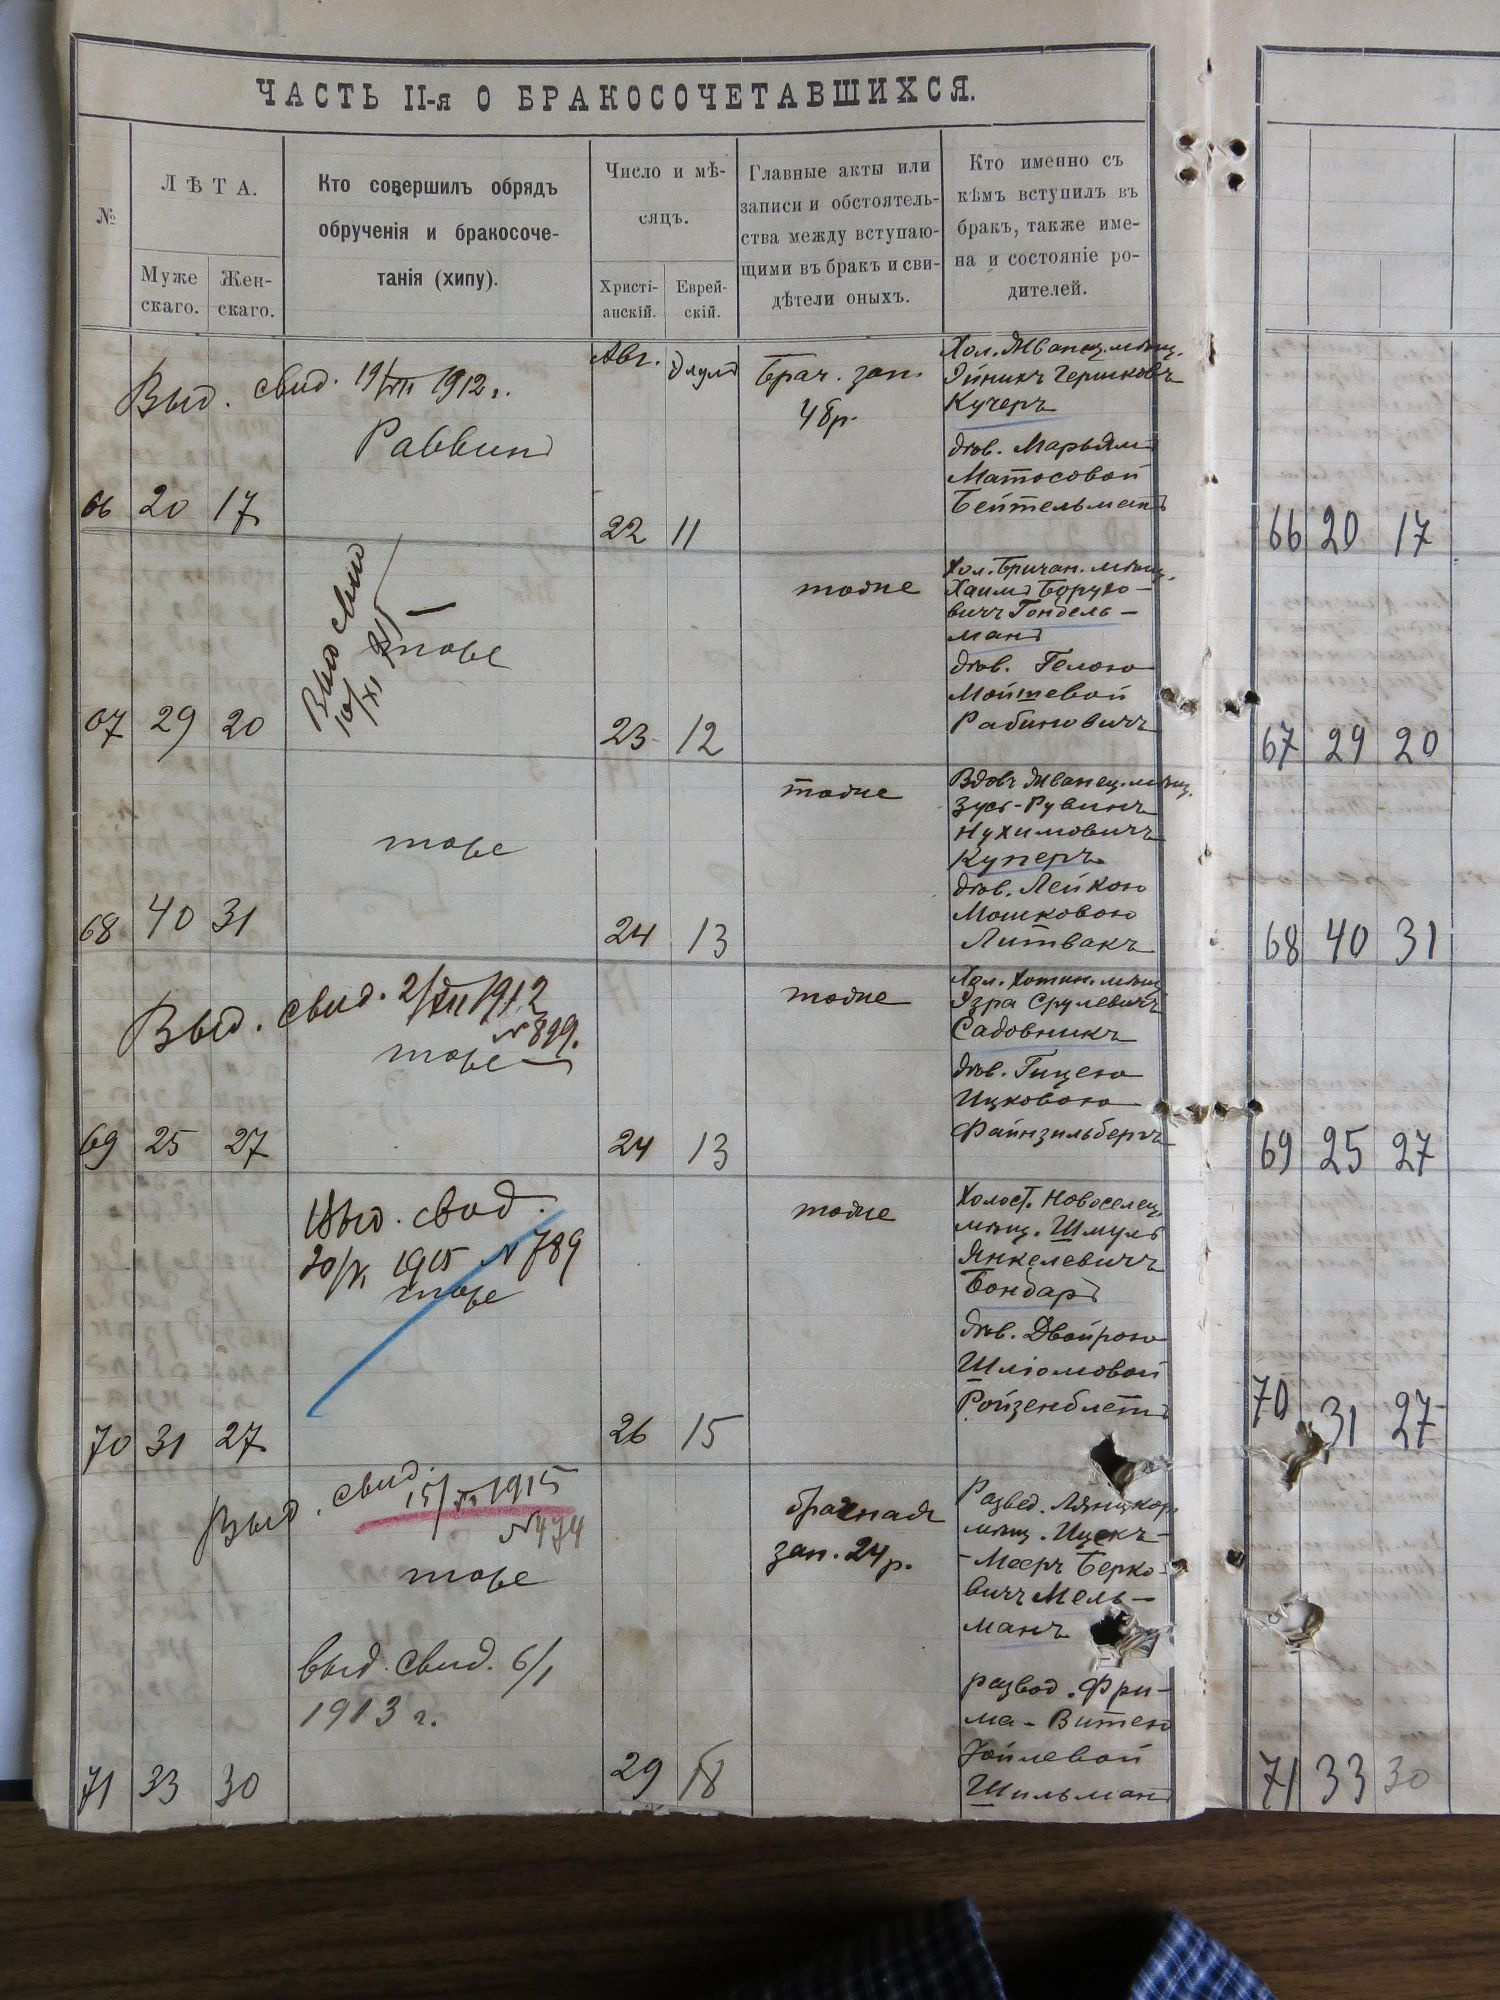 ЧАСТЬ II-я О БРАКОСОЧЕТАВШИХСЯ.
№
ЛѢТА.
Муже
скаго.
Жен-
скаго.
Кто совершилъ обрядъ
обрученія и бракосоче-
танія (хипу).
Число и мѣ-
сяцъ.
Христі-
анскій.
Еврей-
скій.
Главные акты или
записи и обстоятель-
ства между вступаю-
щими въ бракъ и сви-
дѣтели оныхъ.
Кто именно съ
кѣмъ вступилъ въ
бракъ, также име-
на и состояніе ро-
дителей.
66 20 17
Выд. свид. 19/VIII 1912 г.
Раввинъ
Авг. Элулъ
22 11
Брач. зап.
48р.
Хол. Жванец. мѣщ.
Эйникъ Гершковъ
Кучеръ
дѣв. Марьямъ
Матосовой
Бейтельманъ
66 20 17
67 29 20
10/XI 915
тоже
23 12
тоже
Хол. Бричан. мѣщ.
Хаимъ Борухо-
вичъ Гондель-
манъ
дѣв. Гелею
Мойшевой
Рабиновичъ
67 29 20
68 40 31
тоже
24 13
тоже
Вдовъ Жванец. мѣщ.
Зусь-Рувинъ
Нухимовичъ
Куперъ
дѣв. Лейкою
Мошковою
Литвакъ
68 40 31
69 25 27
Выд. свид. 2/XII 1912
№ 899.
тоже
24 13
тоже
Хол. Хотин. мѣщ.
Эзра Срулевичъ
Садовникъ
дѣв. Гицею
Ицковою
Файнзильберъ
69 25 27
70 31 27
Выд. свид.
1915 № 789
тоже
26 15
тоже
Холост. Новоселец.
мѣщ. Шмуль
Янкелевичъ
Бондарь
дѣв. Двойрою
Шліомовой
Ройзенблетъ
70 31 27
71 33 30
Выд. свид.
1915
№ 474
тоже
выд. свид. 6/I
1913 г.
29 18
брачная
зап. 24р.
Развед.
мѣщ. Ицекъ-
-Мееръ Берко-
вичъ Мель-
манъ
развод. Фри-
ма-Витею
Іойлевой
Шильманъ
71 33 30